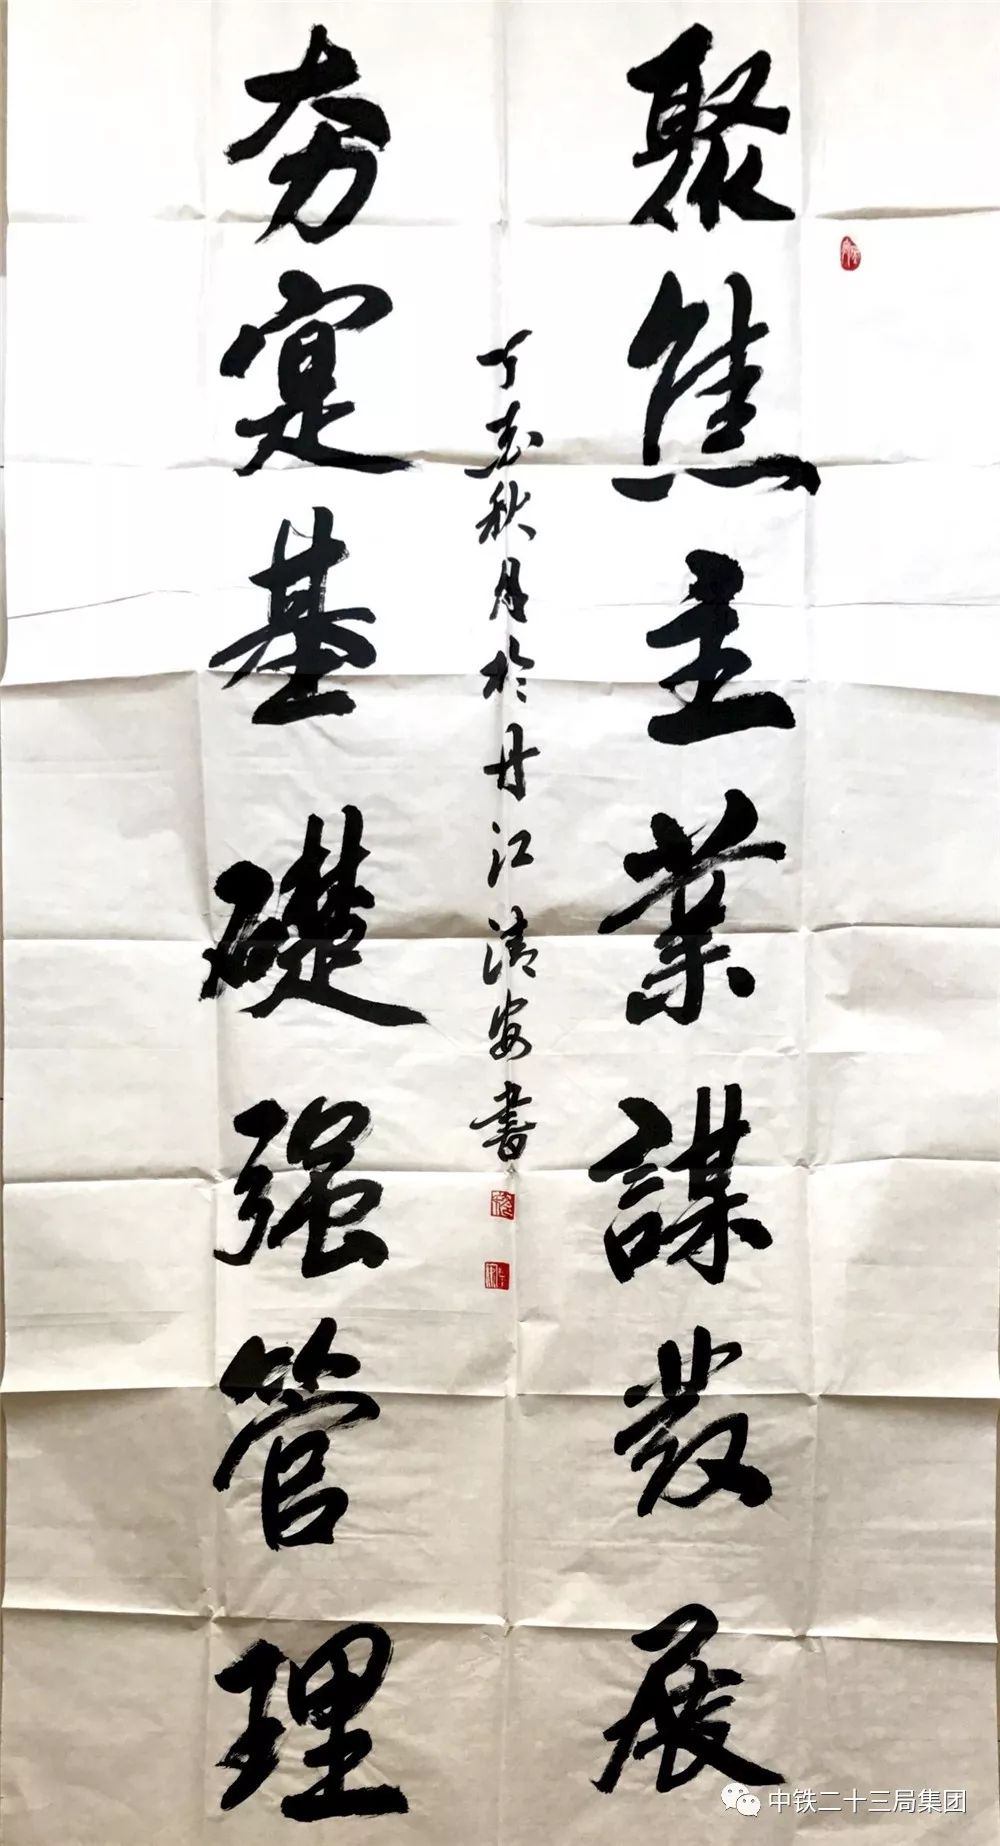 聚焦主業謀發展
夯寔基礎强管理
丁秋月於丹江清安書
中铁二十三局集团